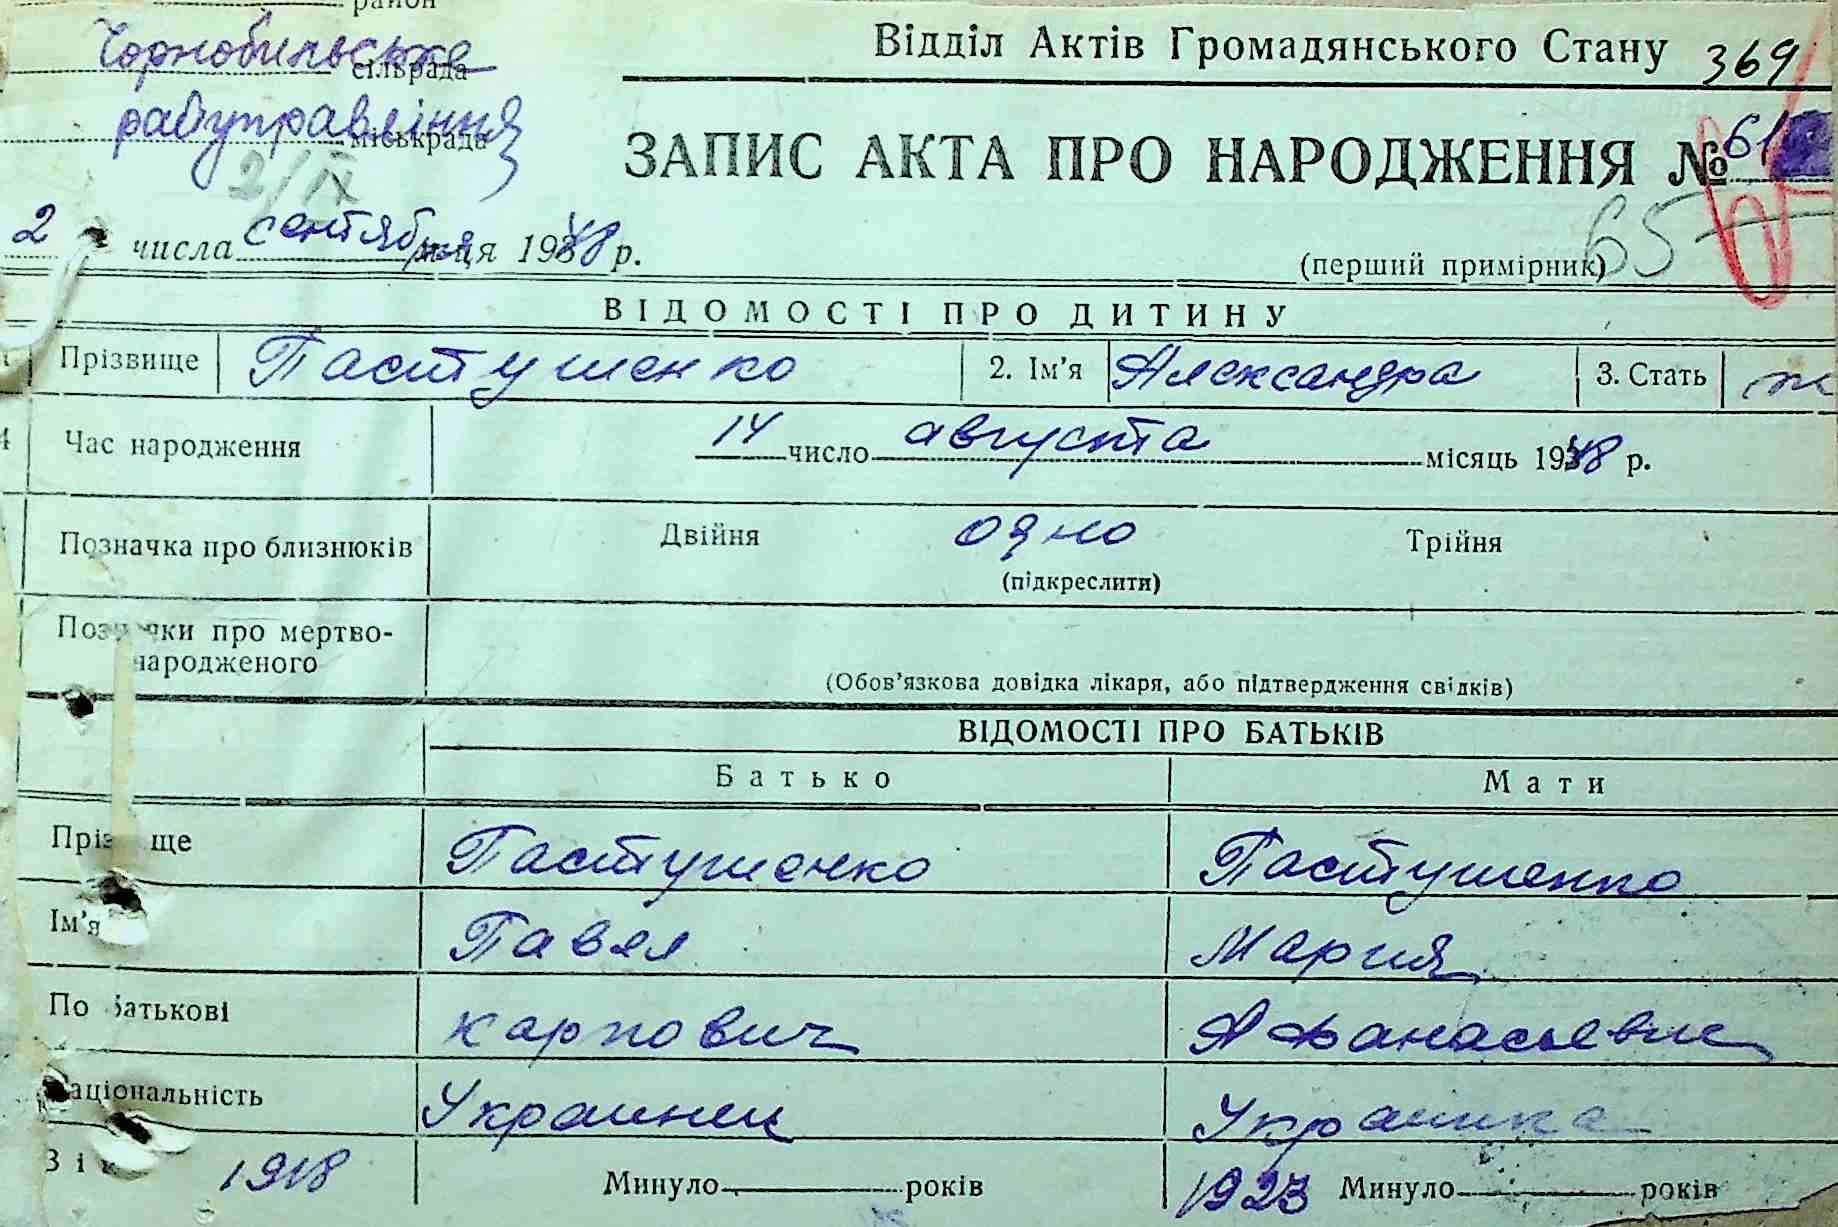 район
Чорнобильське сільрада
райуправління міськрада
2/IX
Відділ Актів Громадянського Стану 369
ЗАПИС АКТА ПРО НАРОДЖЕННЯ № 61
65
2 числа сентября м-ця 1948 р.
(перший примірник)
ВІДОМОСТІ ПРО ДИТИНУ
Прізвище Пастушенко 2. Ім'я Александра 3. Стать ж
4 Час народження 14 число августа місяць 1948 р.
Позначка про близнюків Двійня одно Трійня
(підкреслити)
Позначки про мертво-
народженого
(Обов'язкова довідка лікаря, або підтвердження свідків)
ВІДОМОСТІ ПРО БАТЬКІВ
Батько Мати
Прізвище Пастушенко Пастушенко
Ім'я Павел Мария
По батькові Карпович Афанасьевне
Національність Украинец Украинка
Вік 1918 Минуло років 1923 Минуло років